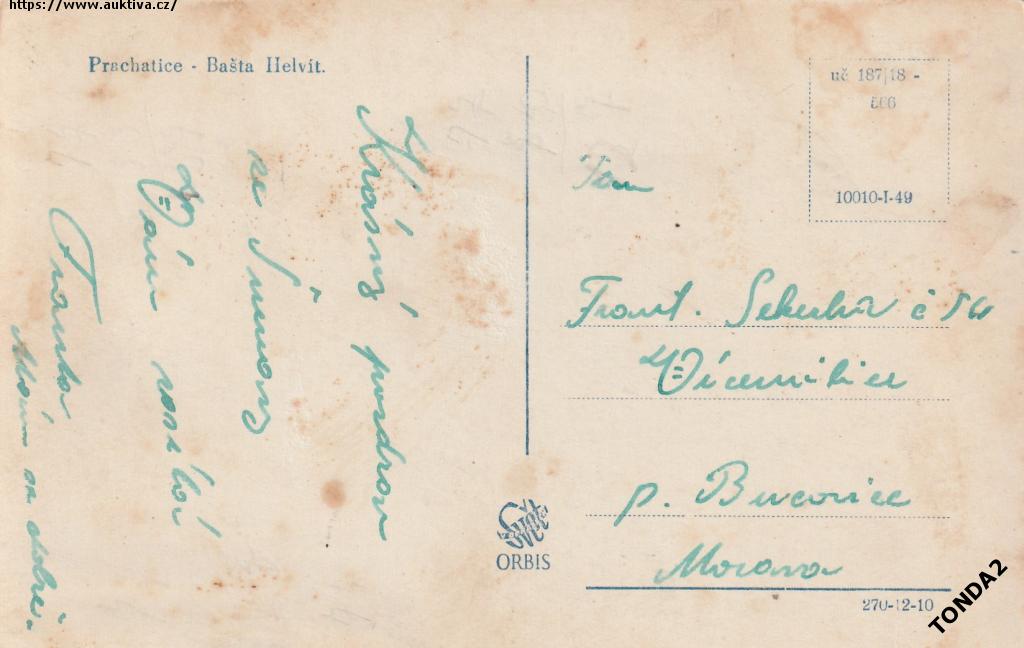 https://www.auktiva.cz/
Prachatice - Bašta Helvít.
Krásný pozdrav
ze Šumavy
Vám
Franta
dobře.
uč 187/18 -
566
10010-I-49
Pan
Frant. č 54
Vícemilice
p. Bučovice
Morava
Svět
ORBIS
270-12-10
TONDA2